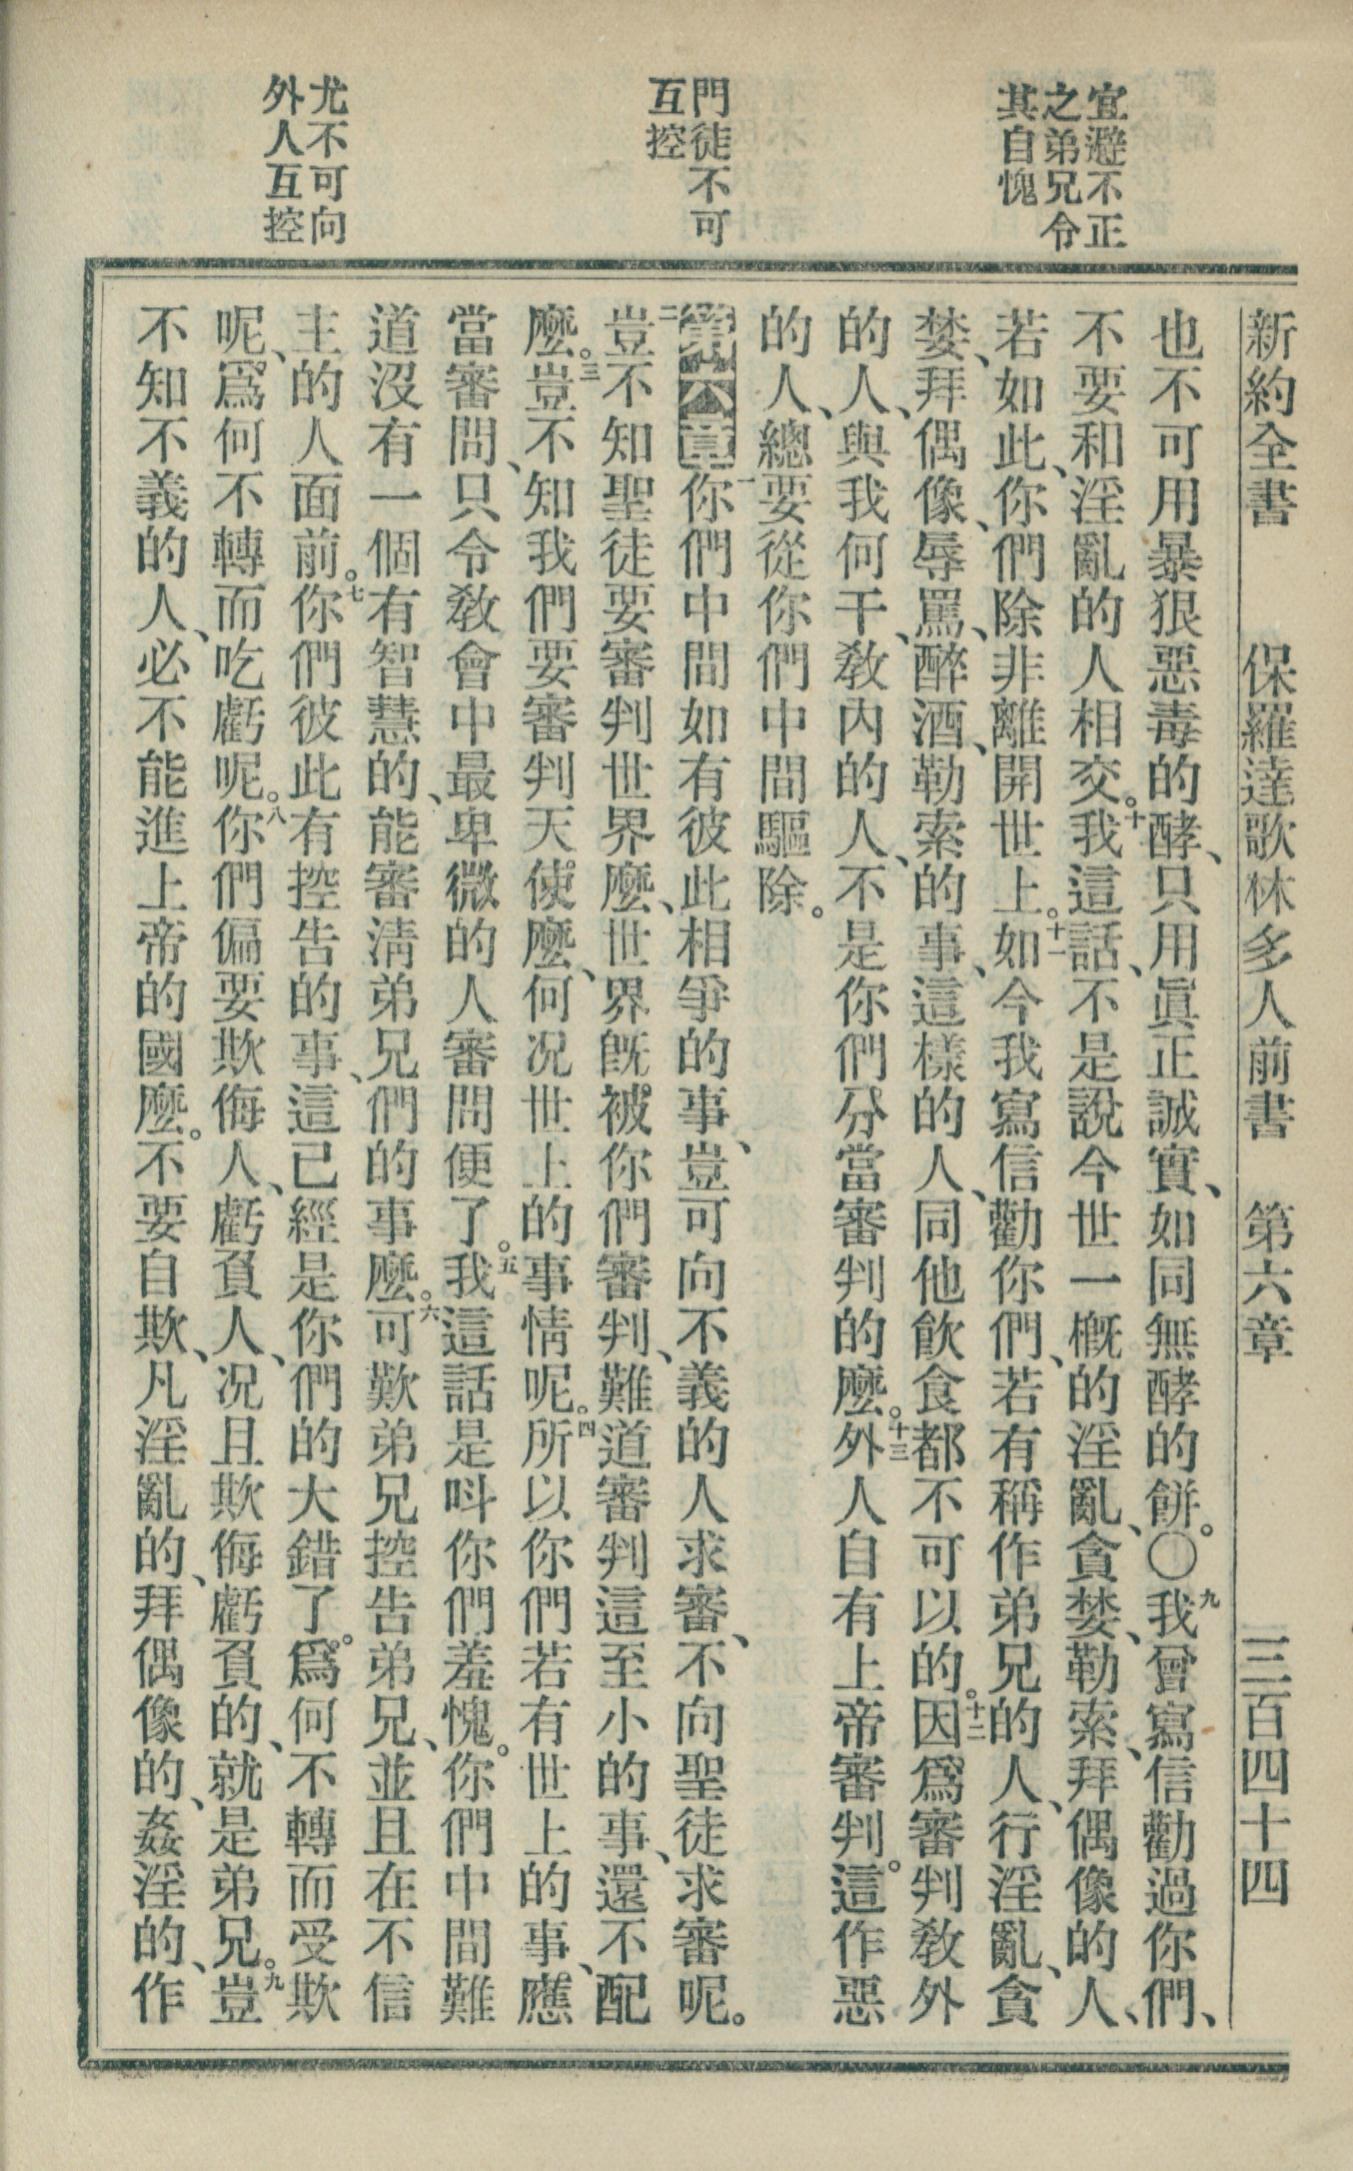 宜避不正
之弟兄令
其自愧
門徒不可
互控
尤不可向
外人互控
新約全書 保羅達歌林多人前書 第六章 三百四十四
也不可用暴狠惡毒的酵、只用眞正誠實、如同無酵的餅。〇九我曾寫信勸過你們、
不要和淫亂的人相交。十我這話、不是說今世一概的淫亂、貪婪、勒索、拜偶像的人、
若如此、你們除非離開世上。十一如今我寫信勸你們、若有稱作弟兄的人、行淫亂、貪
婪、拜偶像、辱罵、醉酒、勒索的事、這樣的人、同他飲食都不可以的。十二因爲審判敎外
的人、與我何干、敎內的人、不是你們分當審判的麽。十三外人自有上帝審判。這作惡
的人、總要從你們中間驅除。
第六章一你們中間如有彼此相爭的事、豈可向不義的人求審、不向聖徒求審呢。
二豈不知聖徒要審判世界麽、世界旣被你們審判、難道審判這至小的事、還不配
麽。三豈不知我們要審判天使麽、何况世上的事情呢。四所以你們若有世上的事、應
當審問、只令敎會中最卑微的人審問便了。五我這話是呌你們羞愧。你們中間難
道沒有一個有智慧的、能審淸弟兄們的事麽。六可歎弟兄控告弟兄、並且在不信
主的人面前。七你們彼此有控告的事、這已經是你們的大錯了。爲何不轉而受欺
呢、爲何不轉而吃虧呢。八你們偏要欺侮人、虧負人、况且欺侮虧負的、就是弟兄。九豈
不知不義的人、必不能進上帝的國麽。不要自欺、凡淫亂的、拜偶像的、姦淫的、作